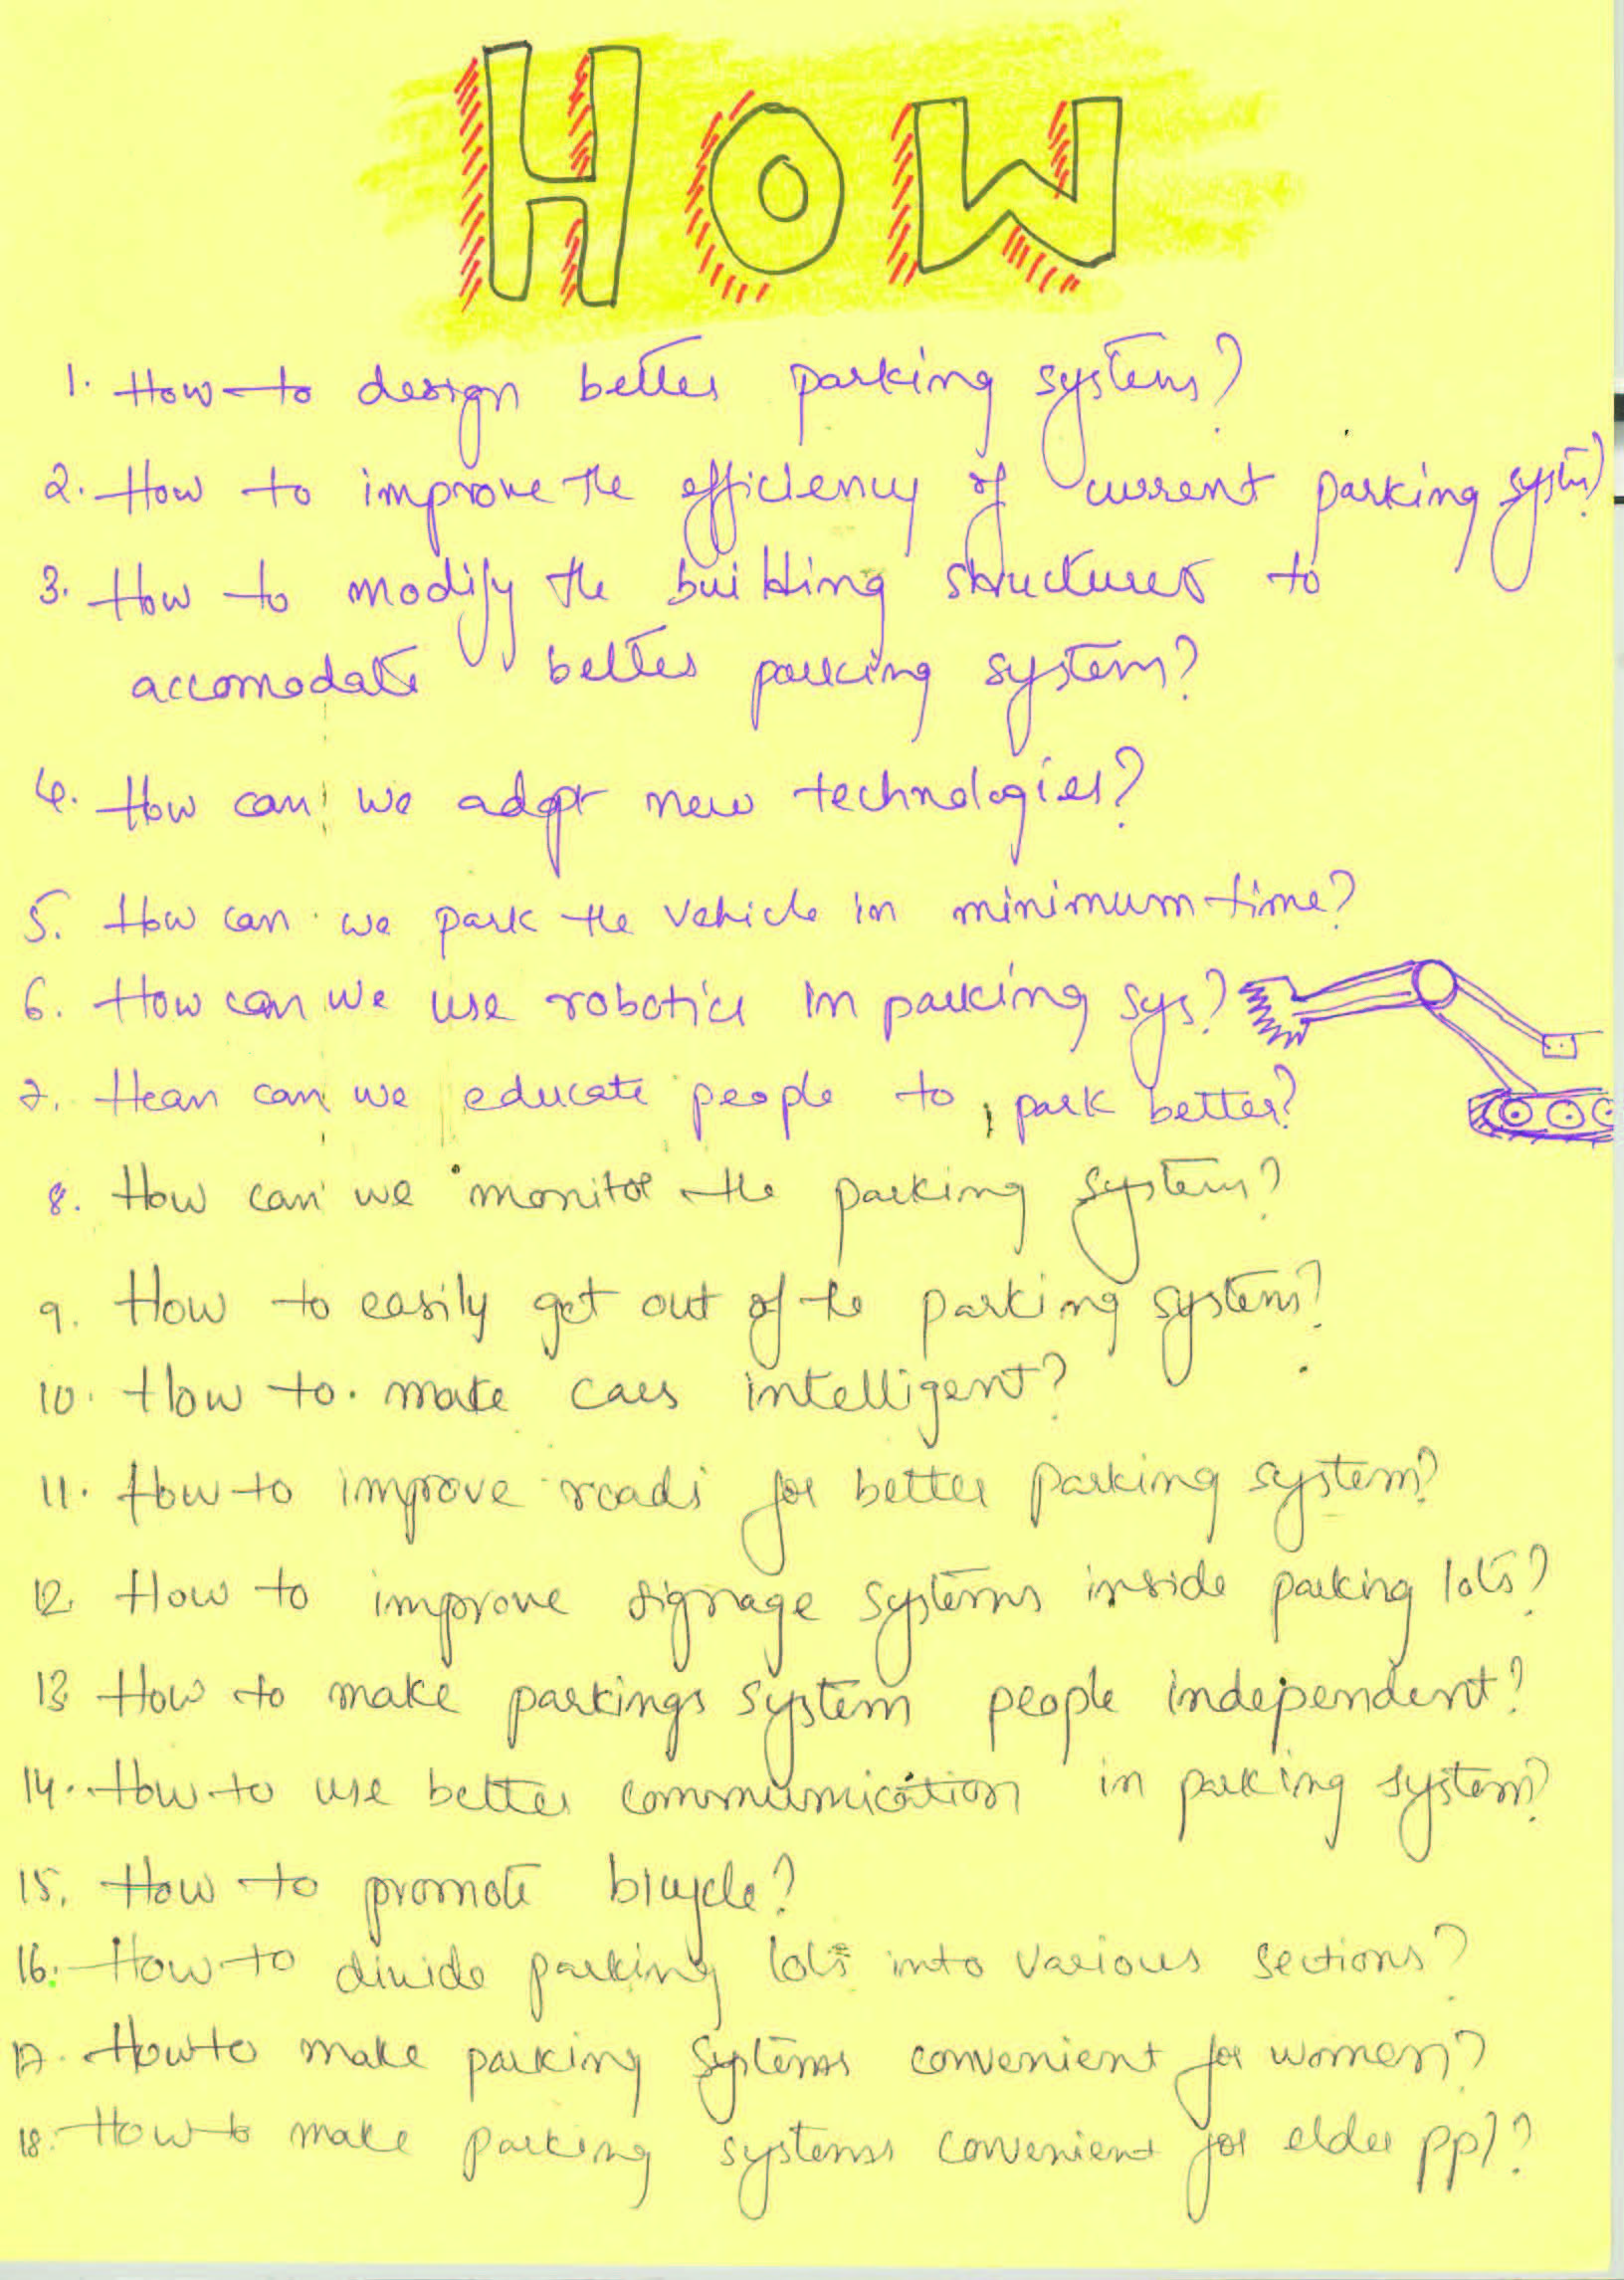 HOW
1. How to design better parking systems?
2. How to improve the efficiency of current parking systm?
3. How to modify the building structures to
accomodate better parking system?
4. How can we adopt new technologies?
5. How can we park the vehicle in minimum time?
6. How can we use robotics in parking sys?
7. Hean can we educate people to park better?
8. How can we monitor the parking system?
9. How to easily get out of the parking system?
10. How to make cars intelligent?
11. How to improve roads for better parking system?
12. How to improve signage systems inside parking lots?
13 How to make parkings system people independent?
14. How to use better communication in parking system?
15. How to promote bicycle?
16. How to divide parking lots into various sections?
17. How to make parking systems convenient for women?
18. How to make parking systems convenient for elder ppl?